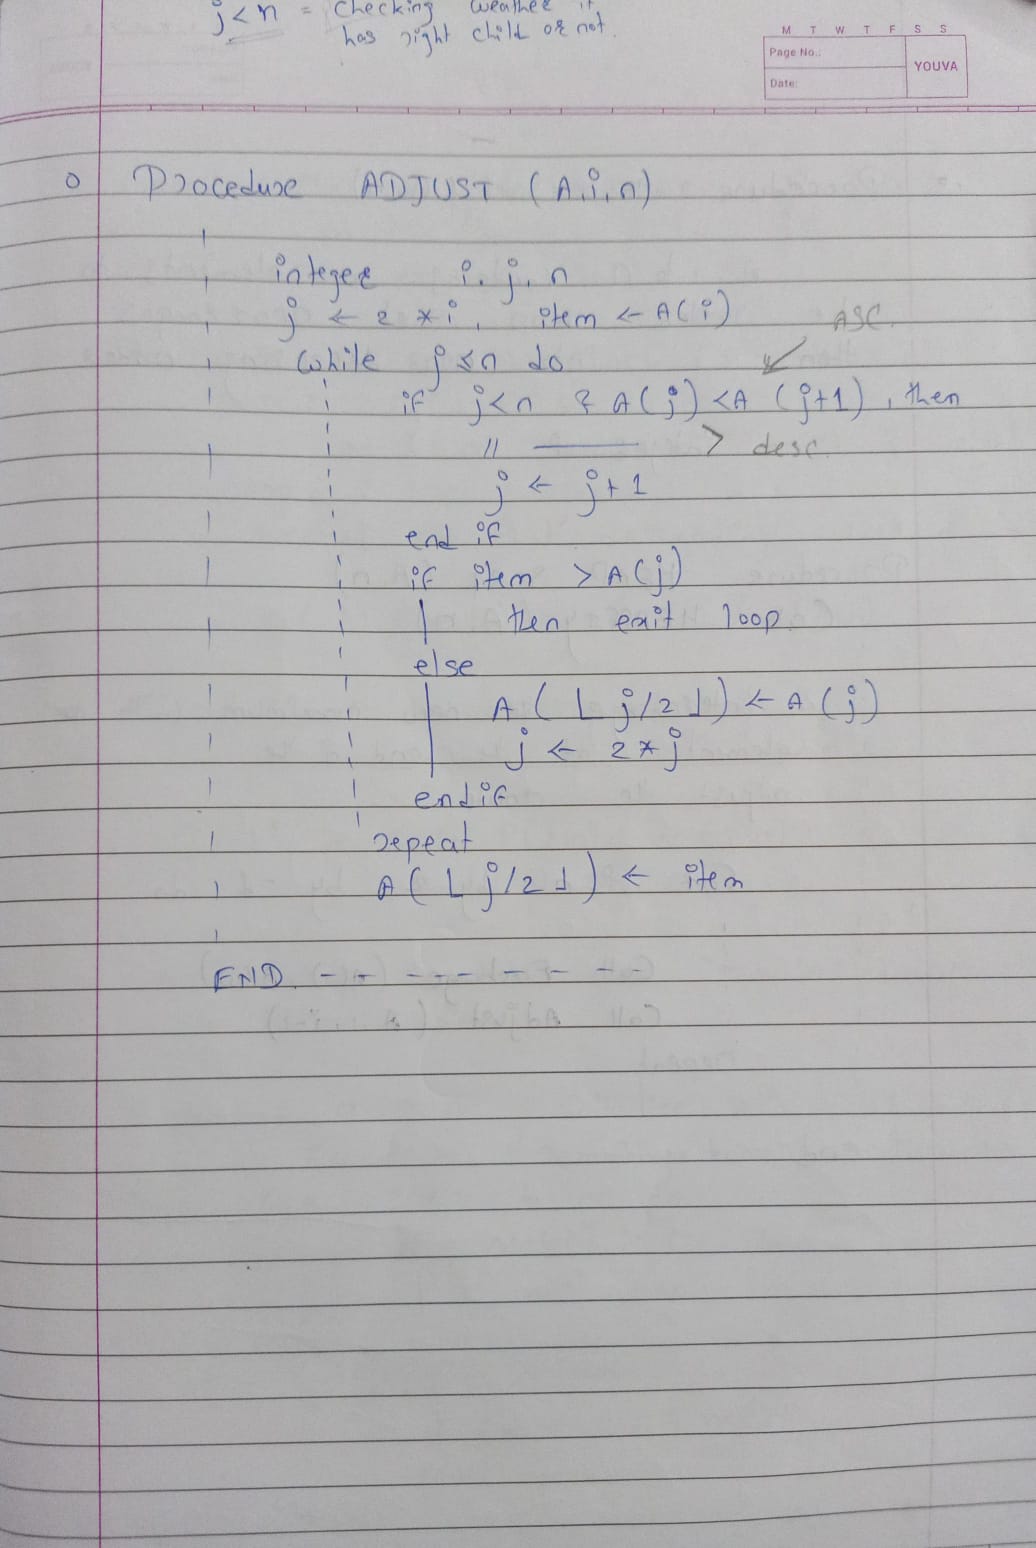 j<n = Checking weather it
has right child or not.
M T W T F S S
Page No.:
YOUVA
Date:
Procedure ADJUST (A,i,n)
integer i, j, n
j ← 2 * i, item ← A(i)
ASC.
While j ≤ n do
if j<n & A(j) < A (j+1), then
// ——— > desc.
j ← j+1
end if
if item > A(j)
then exit loop
else
A (⌊ j/2 ⌋) ← A (j)
j ← 2*j
endif
repeat
A (⌊ j/2 ⌋) ← item
END.